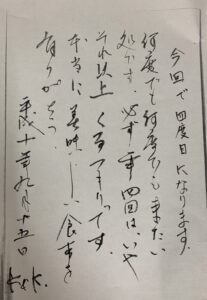 今回で四度目になります。
何度でも何度でも来たい
処です。必ず年四回はいや
それ以上くるつもりです。
本当に美味しい食事を
有りがとう
平成十年九月十五日